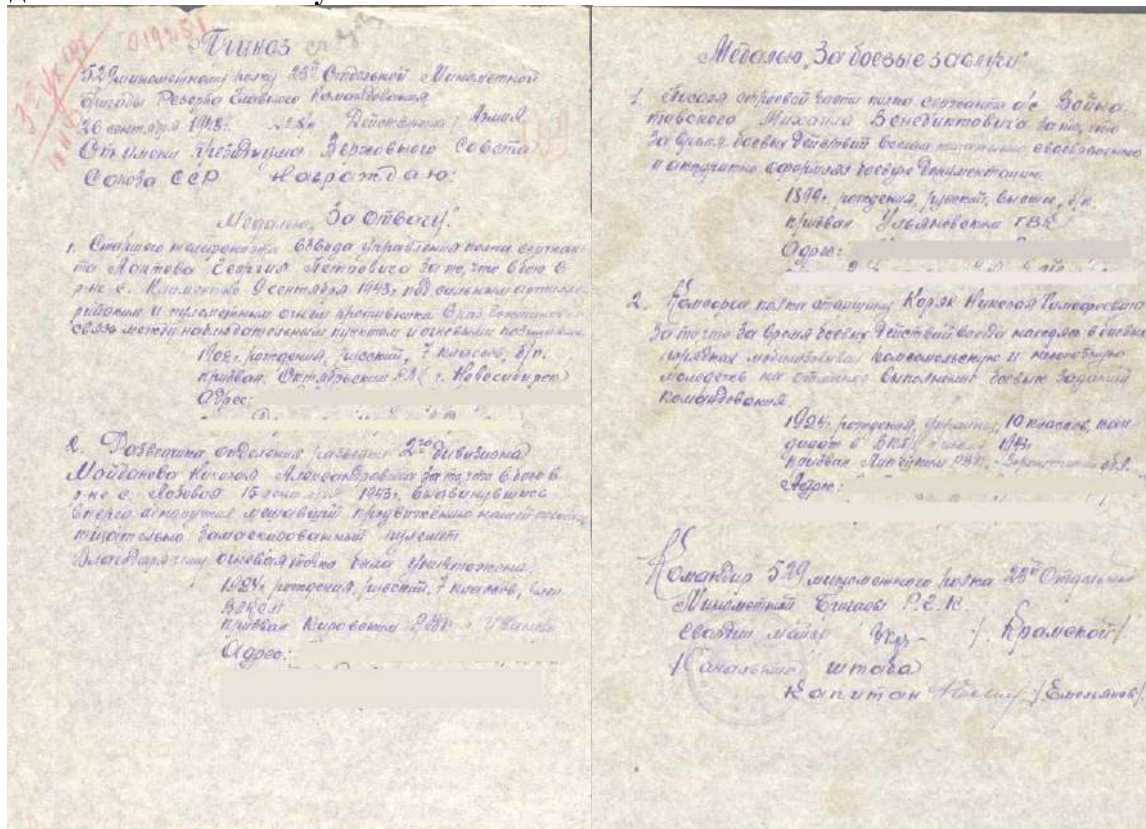 019251
Приказ
529 минометному полку 25й Отдельной Минометной
Бригады Резерва Главного Командования
26 сентября 1943г. Действующая Армия
От имени Президиума Верховного Совета
Союза ССР Награждаю:
Медалью „За Отвагу“
1. Старшего телефониста взвода управления полка сержан-
та Георгия Петровича за то, что в бою в
р-не с. 9 сентября 1943г. под сильным артилле-
рийским и пулеметным огнем противника 6 раз
связь между наблюдательным пунктом и огневыми позициями.
рождения, русский, 7 классов, б/п.
призван Октябрьским РВК г. Новосибирска
Адрес:
2. Разведчика отделения разведки 2го дивизиона
Майданова Николая Александровича за то, что в бою в
р-не с. Лозовая 15 1943г. выдвинувшись
вперед обнаружил мешавший продвижению нашей пехоты
тщательно замаскированный пулемет.
Благодаря чему огневая точка была уничтожена
1924г. рождения, русский, 7 классов, член
ВЛКСМ
призван Кировским РВК г.
Адрес:
Медалью „За боевые заслуги“
1. Писаря строевой части полка сержанта а/с Война-
товского Михаила Венедиктовича за то, что
за время боевых действий своевременно
и аккуратно оформлял боевую документацию.
рождения, русский, б/п.
призван Ульяновским ГВК
Адрес:
2. Комсорга полка старшину Коряк Николая Тимофеевича
За то что за время боевых действий всегда находясь в боевых
порядках мобилизовывал комсомольскую и
молодежь на отличное выполнение боевых заданий
командования.
1924г. рождения, украинец, 10 классов, кан-
дидат в ВКП/б/ с 1943г.
призван Липецким РВК, Воронежской обл.
Адрес:
Командир 529 минометного полка 25й Отдельной
Минометной Бригады Р.Г.К.
Гвардии майор /Крамской/
Начальник штаба
Капитан /Емельянов/